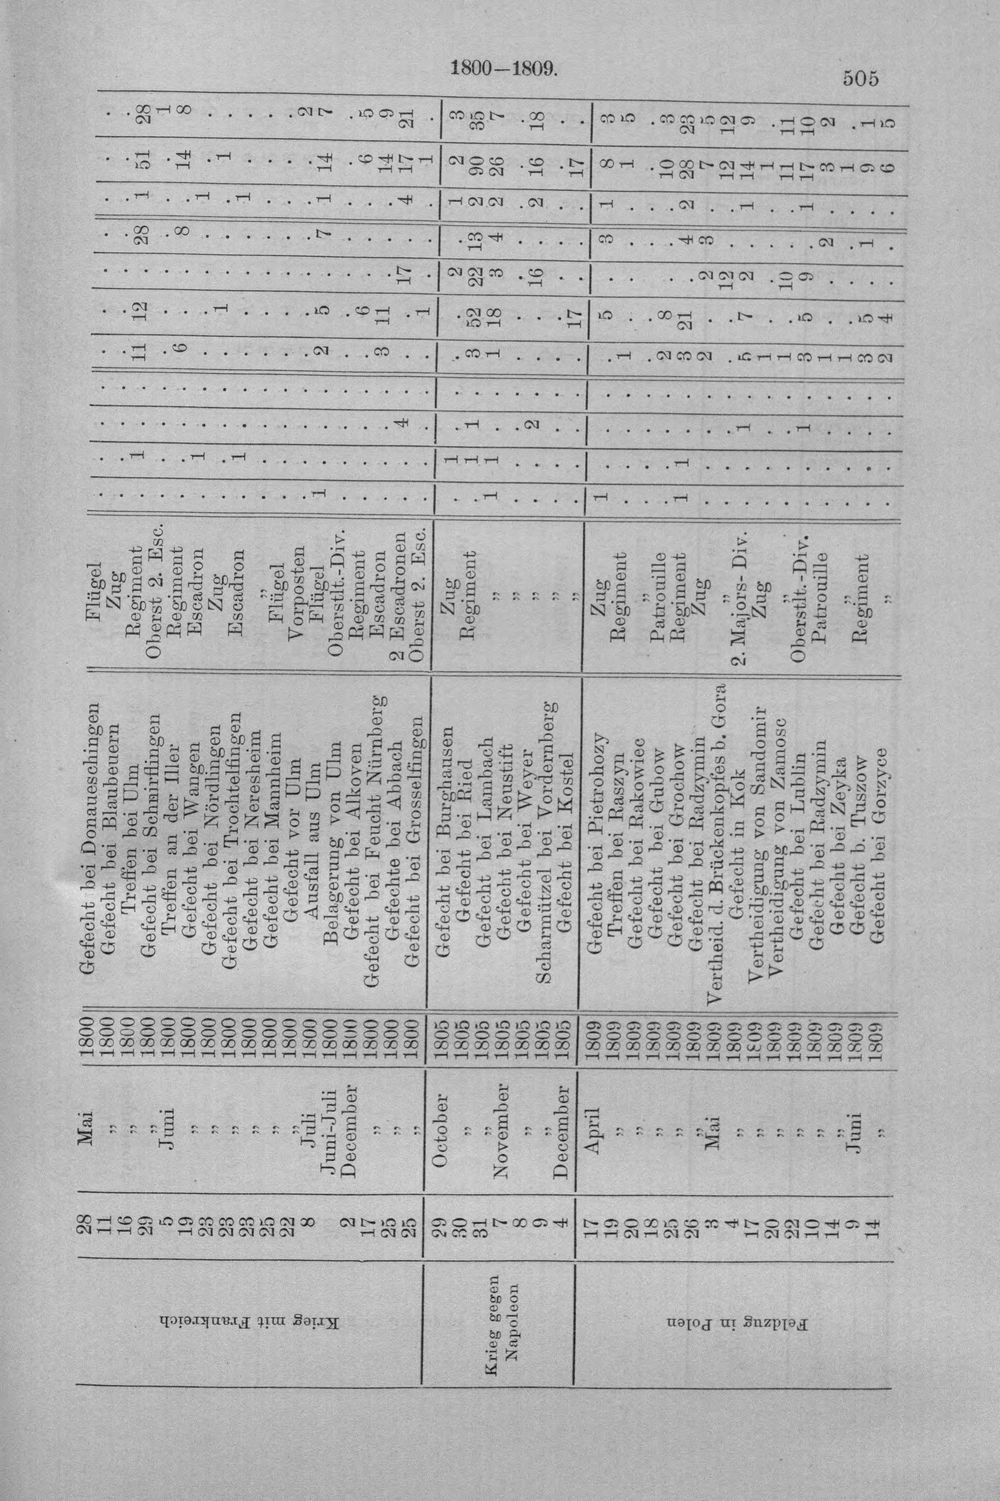 1800—1809.
505
Krieg mit Frankreich
28 Mai 1800 Gefecht bei Donaueschingen Flügel . . . . . . . . . . .
11 „ 1800 Gefecht bei Blaubeuern Zug . . . . . . . . . . .
16 „ 1800 Treffen bei Ulm Regiment . 1 . . 11 12 . 28 1 51 28
29 „ 1800 Gefecht bei Schainflingen Oberst 2. Esc. . . . . . . . . . . 1
5 Juni 1800 Treffen an der Iller Regiment . . . . 6 . . 8 . 14 8
19 „ 1800 Gefecht bei Wangen Escadron . 1 . . . . . . 1 . .
23 „ 1800 Gefecht bei Nördlingen Zug . . . . . 1 . . . 1 .
23 „ 1800 Gefecht bei Trochtelfingen Escadron . 1 . . . . . . 1 . .
23 „ 1800 Gefecht bei Neresheim „ . . . . . . . . . . .
25 „ 1800 Gefecht bei Mannheim Flügel . . . . . . . . . . .
22 „ 1800 Gefecht vor Ulm Vorposten . . . . . . . . . . 2
8 Juli 1800 Ausfall aus Ulm Flügel 1 . . . 2 5 . 7 1 14 7
Juni-Juli 1800 Belagerung von Ulm Oberstlt.-Div. . . . . . . . . . . .
2 December 1800 Gefecht bei Alkoven Regiment . . . . . 6 . . . 6 5
17 „ 1800 Gefecht bei Feucht Nürnberg Escadron . . . . 3 11 . . . 14 9
25 „ 1800 Gefechte bei Abbach 2 Escadronen . . 4 . . . 17 . 4 17 21
25 „ 1800 Gefecht bei Grosselfingen Oberst 2. Esc. . . . . . 1 . . . 1 .
Krieg gegen
Napoleon
29 October 1805 Gefecht bei Burghausen Zug . 1 . . . . 2 . 1 2 3
30 „ 1805 Gefecht bei Ried Regiment . 1 1 . 3 52 22 13 2 90 35
31 „ 1805 Gefecht bei Lambach „ 1 1 . . 1 18 3 4 2 26 7
7 November 1805 Gefecht bei Neustift „ . . . . . . . . . . .
8 „ 1805 Gefecht bei Weyer „ . . 2 . . . 16 . 2 16 18
9 „ 1805 Scharmützel bei Vordernberg „ . . . . . . . . . . .
4 December 1805 Gefecht bei Kostel „ . . . . . 17 . . . 17 .
Feldzug in Polen
17 April 1809 Gefecht bei Pietrohozy Zug 1 . . . . 5 . 3 1 8 3
19 „ 1809 Treffen bei Raszyn Regiment . . . . 1 . . . . 1 5
20 „ 1809 Gefecht bei Rakowiec „ . . . . . . . . . . .
18 „ 1809 Gefecht bei Gubow Patrouille . . . . 2 8 . . . 10 3
25 „ 1809 Gefecht bei Grochow Regiment 1 1 . . 3 21 . 4 2 28 23
26 „ 1809 Gefecht bei Radzymin Zug . . . . 2 . 2 3 . 7 5
3 Mai 1809 Vertheid. d. Brückenkopfes b. Gora „ . . . . . . 12 . . 12 12
4 „ 1809 Gefecht in Kok 2. Majors- Div. . . 1 . 5 7 2 . 1 14 9
17 „ 1809 Vertheidigung von Sandomir Zug . . . . 1 . . . . 1 .
20 „ 1809 Vertheidigung von Zamosc „ . . . . 1 . 10 . . 11 11
22 „ 1809 Gefecht bei Lublin Oberstlt.-Div. . . 1 . 3 5 9 . 1 17 10
10 „ 1809 Gefecht bei Radzymin Patrouille . . . . 1 . . 2 . 3 2
14 „ 1809 Gefecht bei Zeyka „ . . . . 1 . . . . 1 .
9 Juni 1809 Gefecht b. Tuszow Regiment . . . . 3 5 . 1 . 9 1
14 „ 1809 Gefecht bei Gorzyce „ . . . . 2 4 . . . 6 5